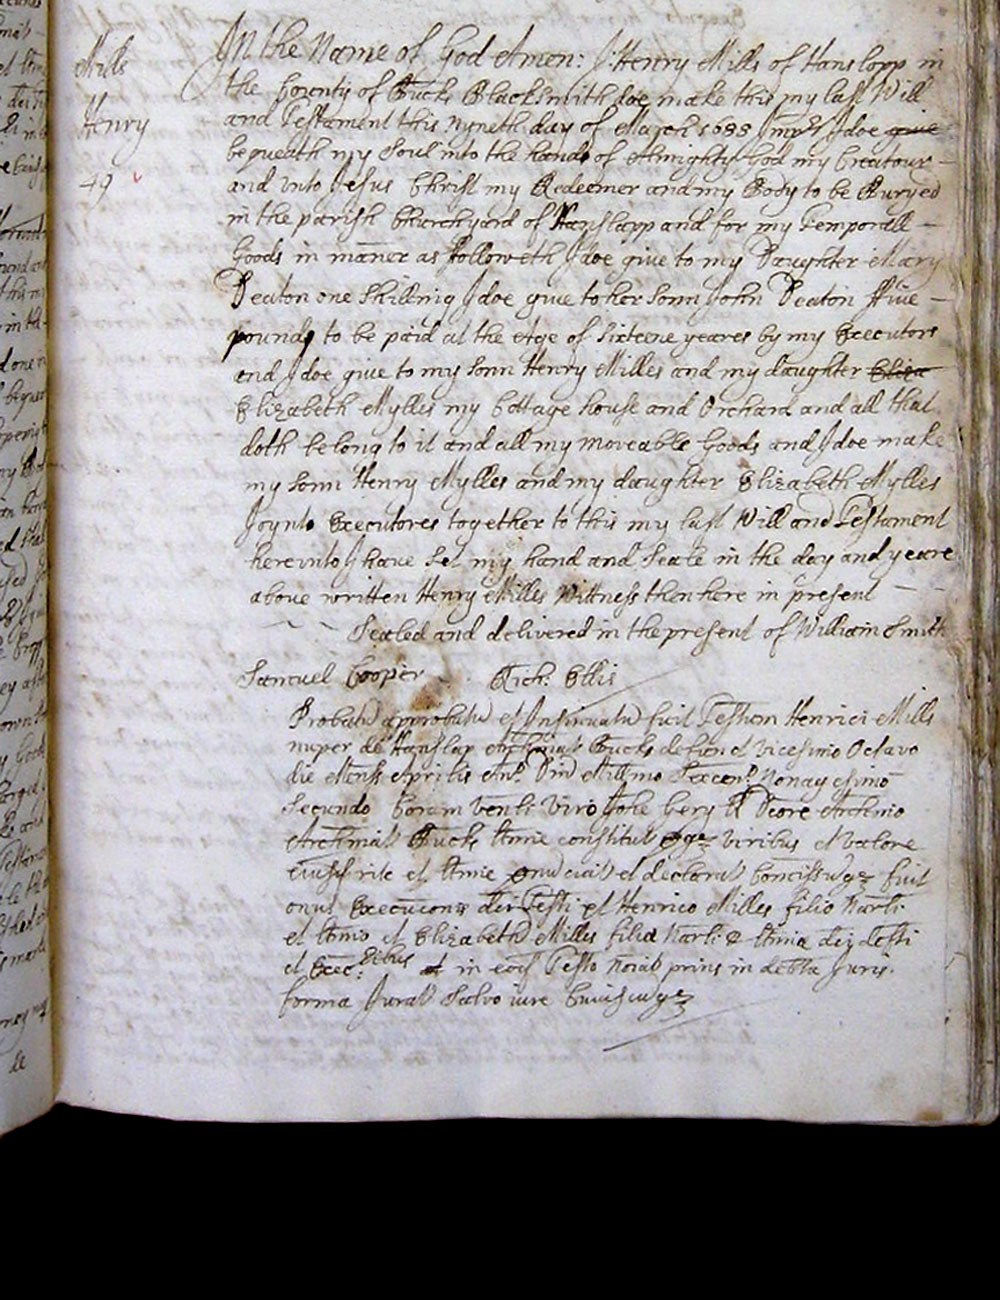 Mills
Henry
49
In the Name of God Amen: I Henry Mills of Hanslopp in
the County of Bucks Blacksmith doe make this my last Will
and Testament this Nyneth day of March 1688 Impr I doe give
bequeath my Soul into the hands of Almighty God my Creatour
and unto Jesus Christ my Redeemer and my Body to be Buryed
in the parish Churchyard of Hanslapp and for my Temporall
Goods in maner as followeth I doe give to my Daughter Mary
Deaton one Shilling I doe give to her Sonn John Deaton ffive
pounds to be paid at the Age of Sixteene yeares by my Executors
and I doe give to my Sonn Henry Milles and my daughter Eliza
Elizabeth Mylles my Cottage house and Orchard and all that
doth belong to it and all my moveable Goods and I doe make
my Sonn Henry Mylles and my daughter Elizabeth Mylles
Joynt Executores together to this my last Will and Testament
hereunto I have Set my hand and Seale in the day and yeare
above written Henry Milles Wittness then here in present
Sealed and delivered in the present of William Smith
Samuel Cooper Rich: Ellis
Probatū approbatū et Insinuatū fuit Testum Henrici Mills
nuper de Hanslap Bucks defunct Vicesimo Octavo
die Mensis Aprilis Ano Dni Millmo Sexcenmo Nonagesimo
Secundo Coram Venli Viro Johe Gery Archino
Archinat Bucks ltime constitut viribus et valore
eiusd rite et ltime et declarat fuit
onus Execucons dci Testi et Henrico Milles filio Narli
et ltimo et Elizabethe Milles filia Narli & ltima dci defti
et Exec: in eod Testo noiat prius in debita Juris
forma Jurat Salvo iure Cuiuscunqz